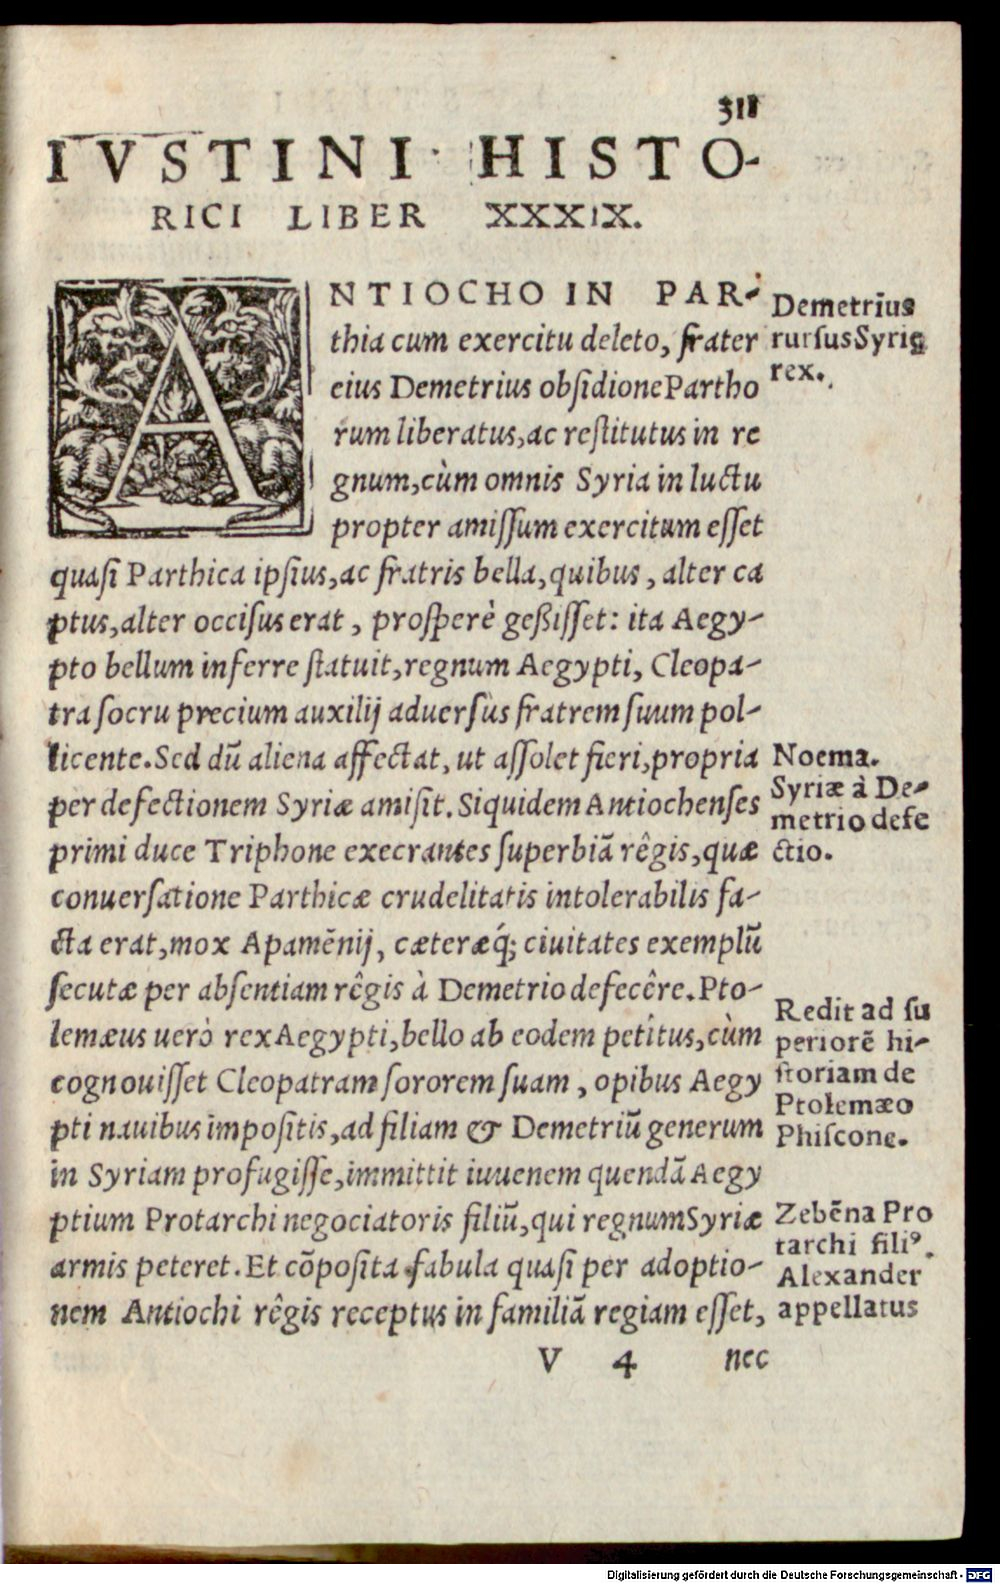 311
IVSTINI HISTO-
RICI LIBER XXXIX.
ANTIOCHO IN PAR-
thia cum exercitu deleto, frater
eius Demetrius obſidione Partho
rum liberatus, ac reſtitutus in re
gnum, cùm omnis Syria in luctu
propter amiſſum exercitum eſſet
quaſi Parthica ipſius, ac fratris bella, quibus, alter ca
ptus, alter occiſus erat, proſperè geßiſſet: ita Aegy-
pto bellum inferre ſtatuit, regnum Aegypti, Cleopa-
tra ſocru precium auxilij aduerſus fratrem ſuum pol-
licente. Sed dũ aliena affectat, ut aſſolet fieri, propria
per defectionem Syriæ amiſit. Siquidem Antiochenſes
primi duce Triphone execrantes ſuperbiã rêgis, quæ
conuerſatione Parthicæ crudelitatis intolerabilis fa-
cta erat, mox Apamẽnij, cæteræq́; ciuitates exemplũ
ſecutæ per abſentiam rêgis à Demetrio defecêre. Pto-
lemæus uerò rex Aegypti, bello ab eodem petîtus, cùm
cognouiſſet Cleopatram ſororem ſuam, opibus Aegy
pti nauibus impoſitis, ad filiam & Demetriũ generum
in Syriam profugiſſe, immittit iuuenem quendã Aegy
ptium Protarchi negociatoris filiũ, qui regnum Syriæ
armis peteret. Et cõpoſita fabula quaſi per adoptio-
nem Antiochi rêgis receptus in familiã regiam eſſet,
V 4 nec
Demetrius
rurſus Syrię
rex.
Noema.
Syriæ à De-
metrio defe
ctio.
Redit ad ſu
periorẽ hi-
ſtoriam de
Ptolemæo
Phiſcone.
Zebẽna Pro
tarchi filiꝰ.
Alexander
appellatus
Digitalisierung gefördert durch die Deutsche Forschungsgemeinschaft - DFG